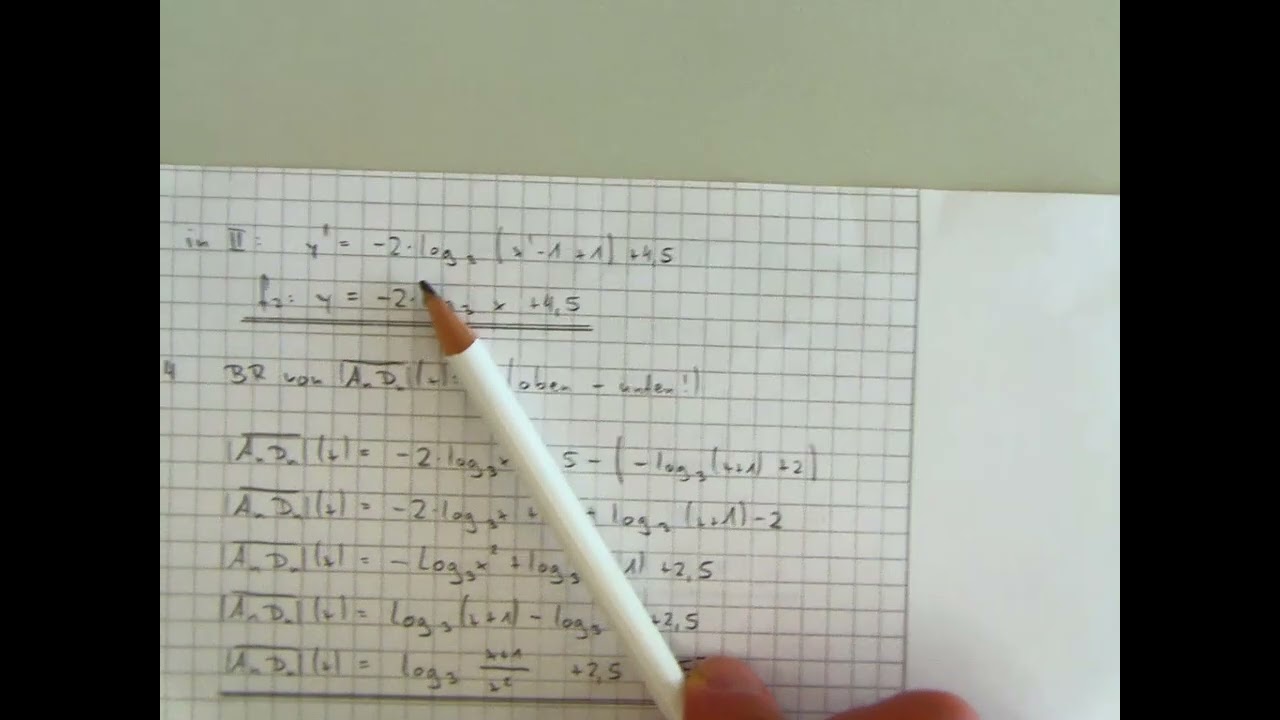 in II: y' = -2·log₃ (x'-1+1) +4,5
f₂: y = -2·log₃ x +4,5
4 BR von |AₙDₙ|(x): (oben - unten!)
|AₙDₙ|(x) = -2·log₃x 5 - (-log₃(x+1)+2)
|AₙDₙ|(x) = -2·log₃x + + log₃(x+1)-2
|AₙDₙ|(x) = -log₃x² + log₃ 1) +2,5
|AₙDₙ|(x) = log₃(x+1) - log₃ +2,5
|AₙDₙ|(x) = log₃ (x+1)/x² +2,5